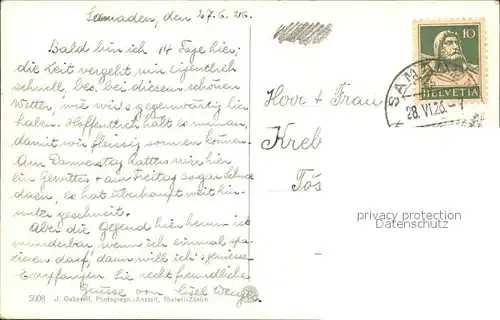 Samaden, den 27.6.26.
Bald bin ich 14 Tage hier,
die Zeit vergeht mir eigentlich
schnell, bes. bei diesem schönen
Wetter, wie wir's gegenwärtig hier
haben. Hoffentlich hält es nun an,
damit wir fleissig sonnen können.
Am Donnerstag hatten wir hier
ein Gewitter & am Freitag sogar Schnee
daen, es hat überhaupt weit hin-
unter geschneit.
Aber die Gegend hier herum ist
wunderbar, wenn ich einmal spa-
zieren darf, dann will ich's geniessen.
Empfangen Sie recht freundliche
Grüsse von Lisel
5008 J. Gaberell, Photograph.-Anstalt, Thalwil-Zürich
10
HELVETIA
SAMADEN
28.VI.26.-7
Herr & Frau
Kreb
Töss
privacy protection
Datenschutz